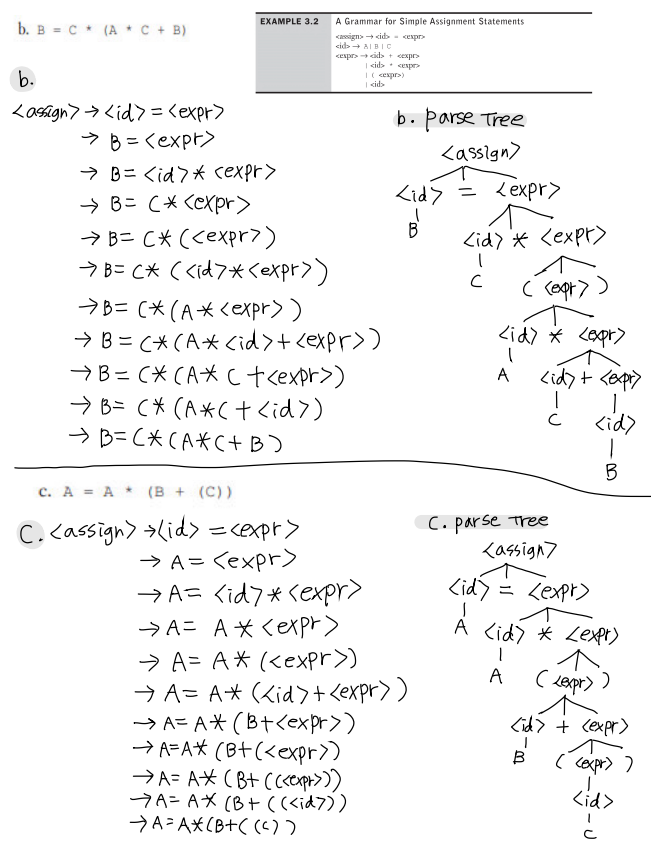 b. B = C * (A * C + B)
EXAMPLE 3.2 A Grammar for Simple Assignment Statements
<assign> → <id> = <expr>
<id> → A | B | C
<expr> → <id> + <expr>
| <id> * <expr>
| ( <expr>)
| <id>
b.
<assign> → <id> = <expr>
→ B = <expr>
→ B = <id> * <expr>
→ B = C * <expr>
→ B = C * (<expr>)
→ B = C * (<id> * <expr>)
→ B = C * (A * <expr>)
→ B = C * (A * <id> + <expr>)
→ B = C * (A * C + <expr>)
→ B = C * (A * C + <id>)
→ B = C * (A * C + B)
b. parse Tree
<assign>
<id> = <expr>
B <id> * <expr>
C ( <expr> )
<id> * <expr>
A <id> + <expr>
C <id>
B
c. A = A * (B + (C))
C. <assign> → <id> = <expr>
→ A = <expr>
→ A = <id> * <expr>
→ A = A * <expr>
→ A = A * (<expr>)
→ A = A * (<id> + <expr>)
→ A = A * (B + <expr>)
→ A = A * (B + (<expr>)
→ A = A * (B + ((<expr>))
→ A = A * (B + ((<id>))
→ A = A * (B + ((C))
C. parse Tree
<assign>
<id> = <expr>
A <id> * <expr>
A ( <expr> )
<id> + <expr>
B ( <expr> )
<id>
C